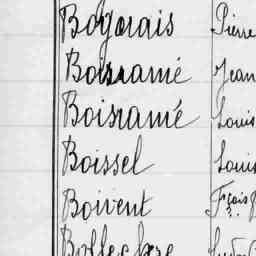 Bogorais Pierre
Boisramé Jean
Boisramé Louis
Boissel Louis
Boivent Fçois